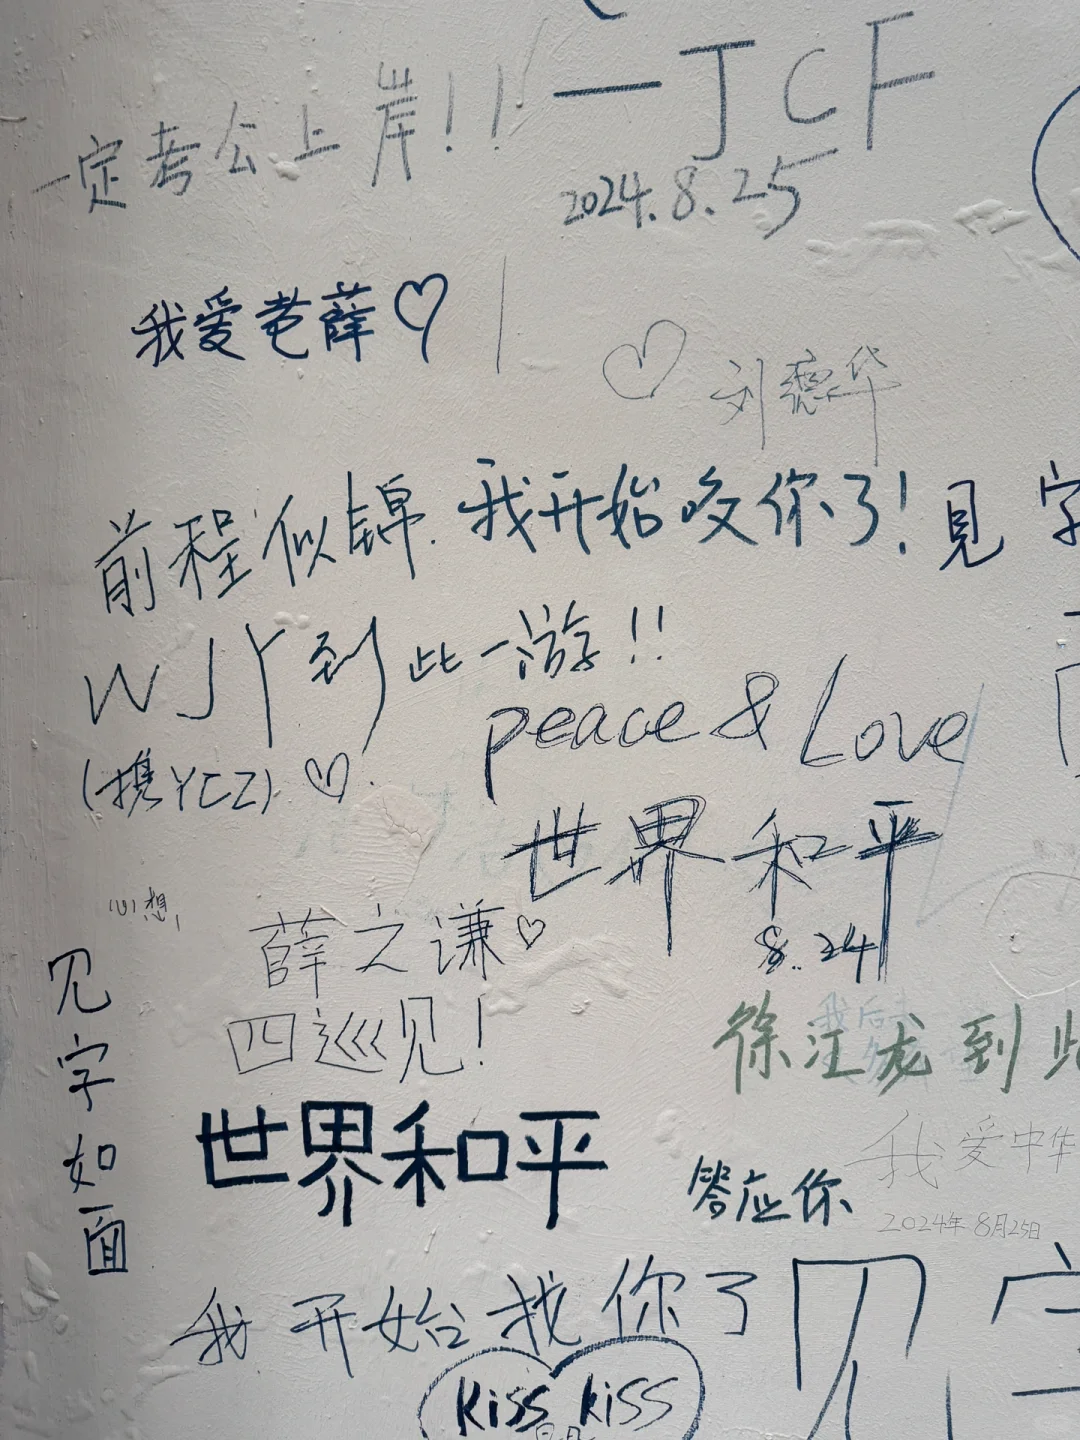 一定考公上岸!!
—JCF
2024.8.25
我爱老薛♡
♡ 刘德华
前程似锦.
我开始咬你了!
見字
WJY到此一游!!
(携YCZ) ♡.
peace & Love
世界和平
8.24
心想
薛之谦♡
四巡见!
见字如面
徐江龙到此
世界和平
我爱中华
2024年8月25日
答应你
我开始找你了
见字
kiss kiss